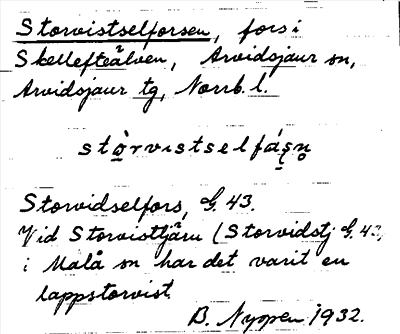 Storvistselforsen, fors i
Skellefteälven, Arvidsjaur sn,
Arvidsjaur tg, Norrb. l.
Storvidselfors, G. 43.
Vid Storvisttjärn (Storvidstj G. 43,
i Malå sn har det varit en
lappstorvist.
B. Nyman 1932.